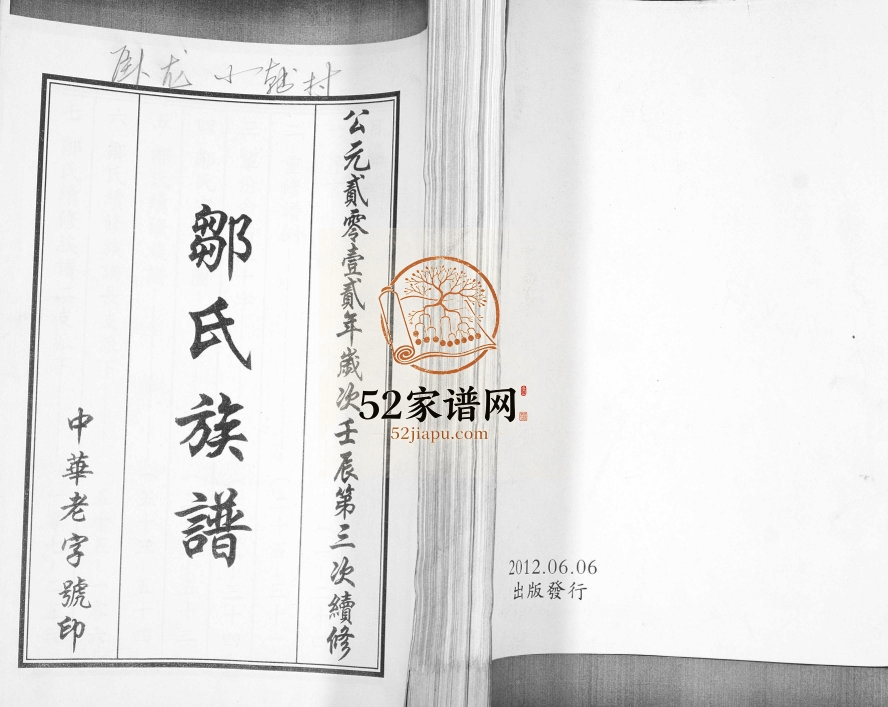 卧龙 小韩村
公元貳零壹貳年歲次壬辰第三次續修
鄒氏族譜
中華老字號印
52家谱网
52jiapu.com
2012.06.06
出版發行